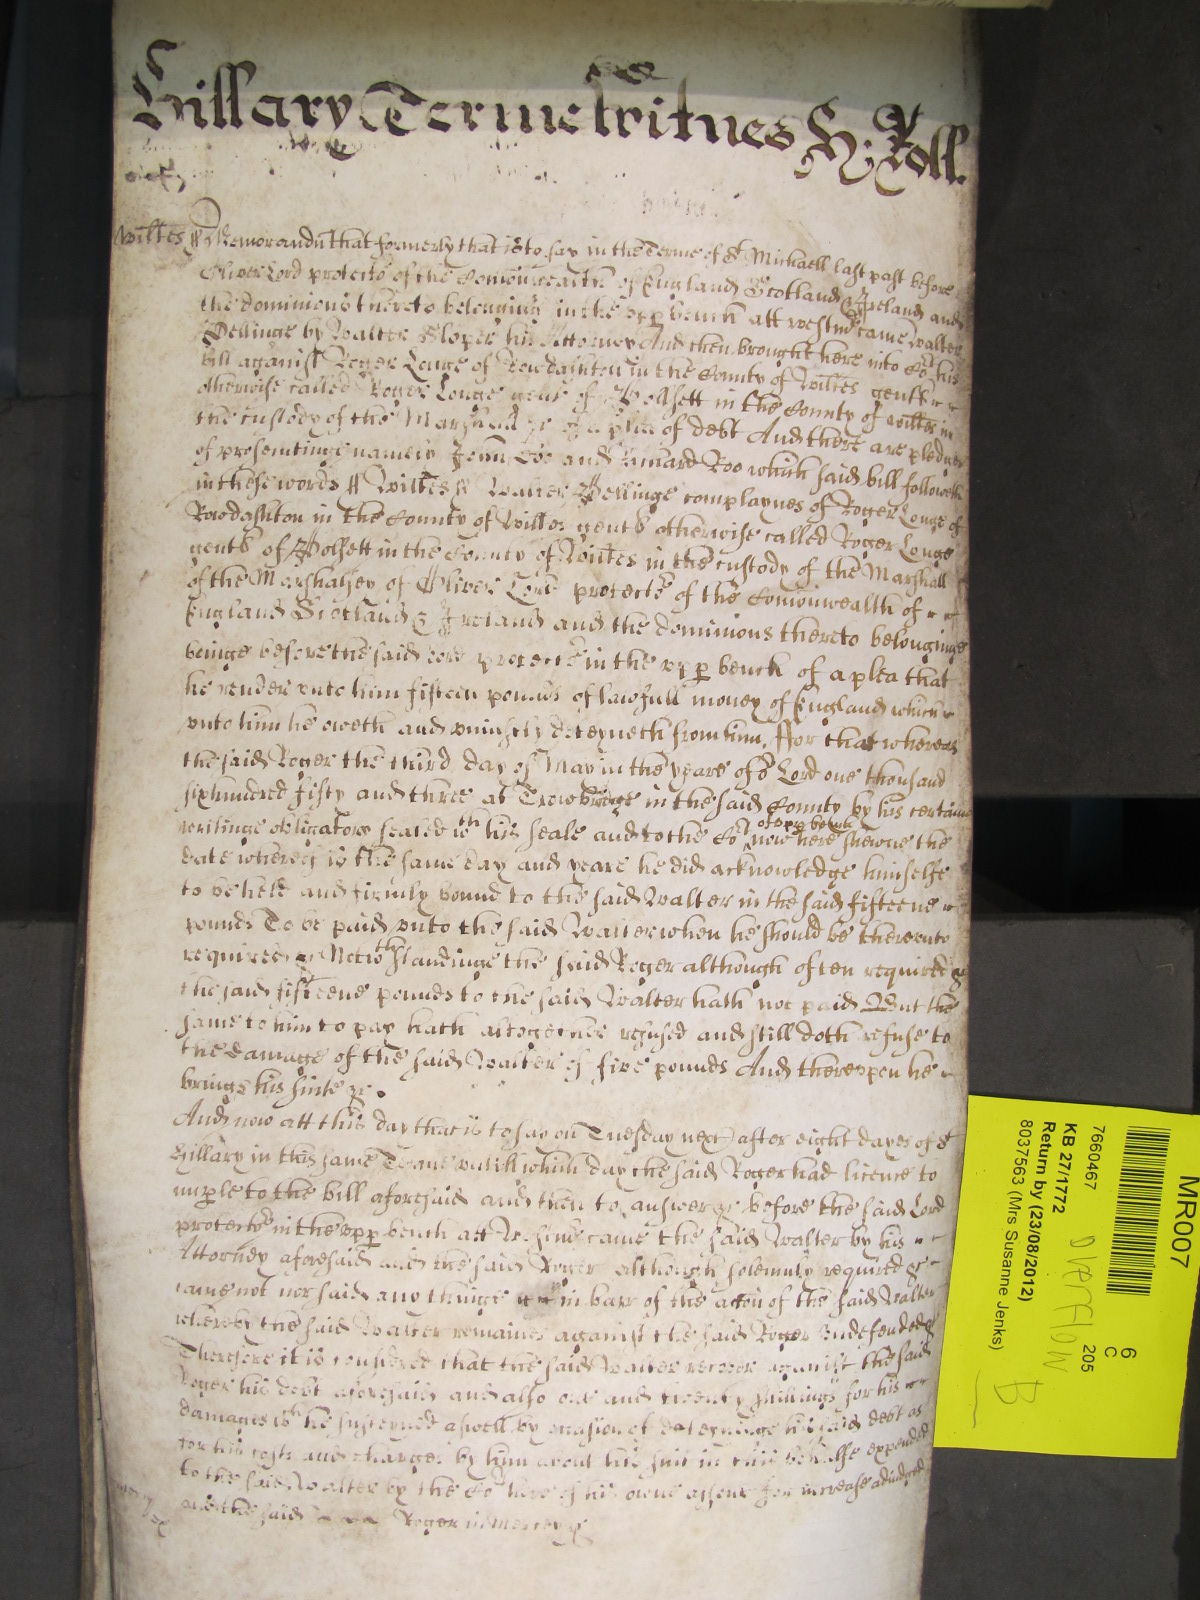 Hillary Terme Witnes H: Roll.
Wiltes ss Memorandu that formerly that is to say in the Terme of St Michaell last past before
Oliver Lord protector of the Comonwealth of England Scotland & Ireland and
the dominions thereto belonging in the upp bench att Westmr came Walter
by Walter Sloper his Attorney And then brought here into Cort his
bill against Roger Longe of Rowdashton in the County of Wiltes gent
otherwise called Roger Longe gent of Polshett in the County of Wiltes in
the custody of the Marshall &c of a plea of debt And there are pledges
of prosecutinge namely John Doe and Richard Roo which said bill followeth
in these words ss Wiltes ss Walter complaynes of Roger Longe of
Rowdashton in the County of Wiltes gent otherwise called Roger Longe
gent of Polshett in the County of Wiltes in the custody of the Marshall
of the Marshalsey of Oliver Lord protector of the Comonwealth of
England Scotland & Ireland and the dominions thereto belonginge
beinge before the said Lord protector in the upp bench of a plea that
he render unto him fifteen pounds of lawfull money of England which
unto him he oweth and uniustly deteyneth from him, ffor that whereas
the said Roger the third day of May in the yeare of or Lord one thousand
sixhundred fifty and three at Trowbridge in the said County by his certaine
writinge obligatory sealed wth his seale and to the Cort of upp bench now here shewne the
date whereof is the same day and yeare he did acknowledge himselfe
to be held and firmly bound to the said Walter in the said fifteene
pounds To be paid unto the said Walter when he should be thereunto
required Notwthstandinge the said Roger although often required &c
the said fifteene pounds to the said Walter hath not paid But the
same to him to pay hath altogether refused and still doth refuse to
the damage of the said Walter of five pounds And thereupon he
brings his suite &c.
And now att this day that is to say on Tuesday next after eight dayes of St
Hillary in this same Terme untill which day the said Roger had licence to
imple to the bill aforesaid and then to answer &c before the said Lord
protector in the upp bench att Westmr came the said Walter by his
Attorney aforesaid And the said Roger although solemnly required &c
came not nor said any thinge in barr of the accon of the said Walter
whereby the said Walter remaines against the said Roger undefended &c
Therefore it is considered that the said Walter recover against the said
Roger his debt aforesaid and also one and twenty shillings for his
damages wch he susteyned aswell by occasion of deteyninge his said debt as
for his costs and charges by him about his suit in this behalfe expended
to the said Walter by the Cort here of his owne assent for increase adiudged
And the said Roger in mercey &c
MR007
6
C
205
7660467
KB 27/1772
Return by (23/08/2012)
8037563 (Mrs Susanne Jenks)
OVERFLOW
B